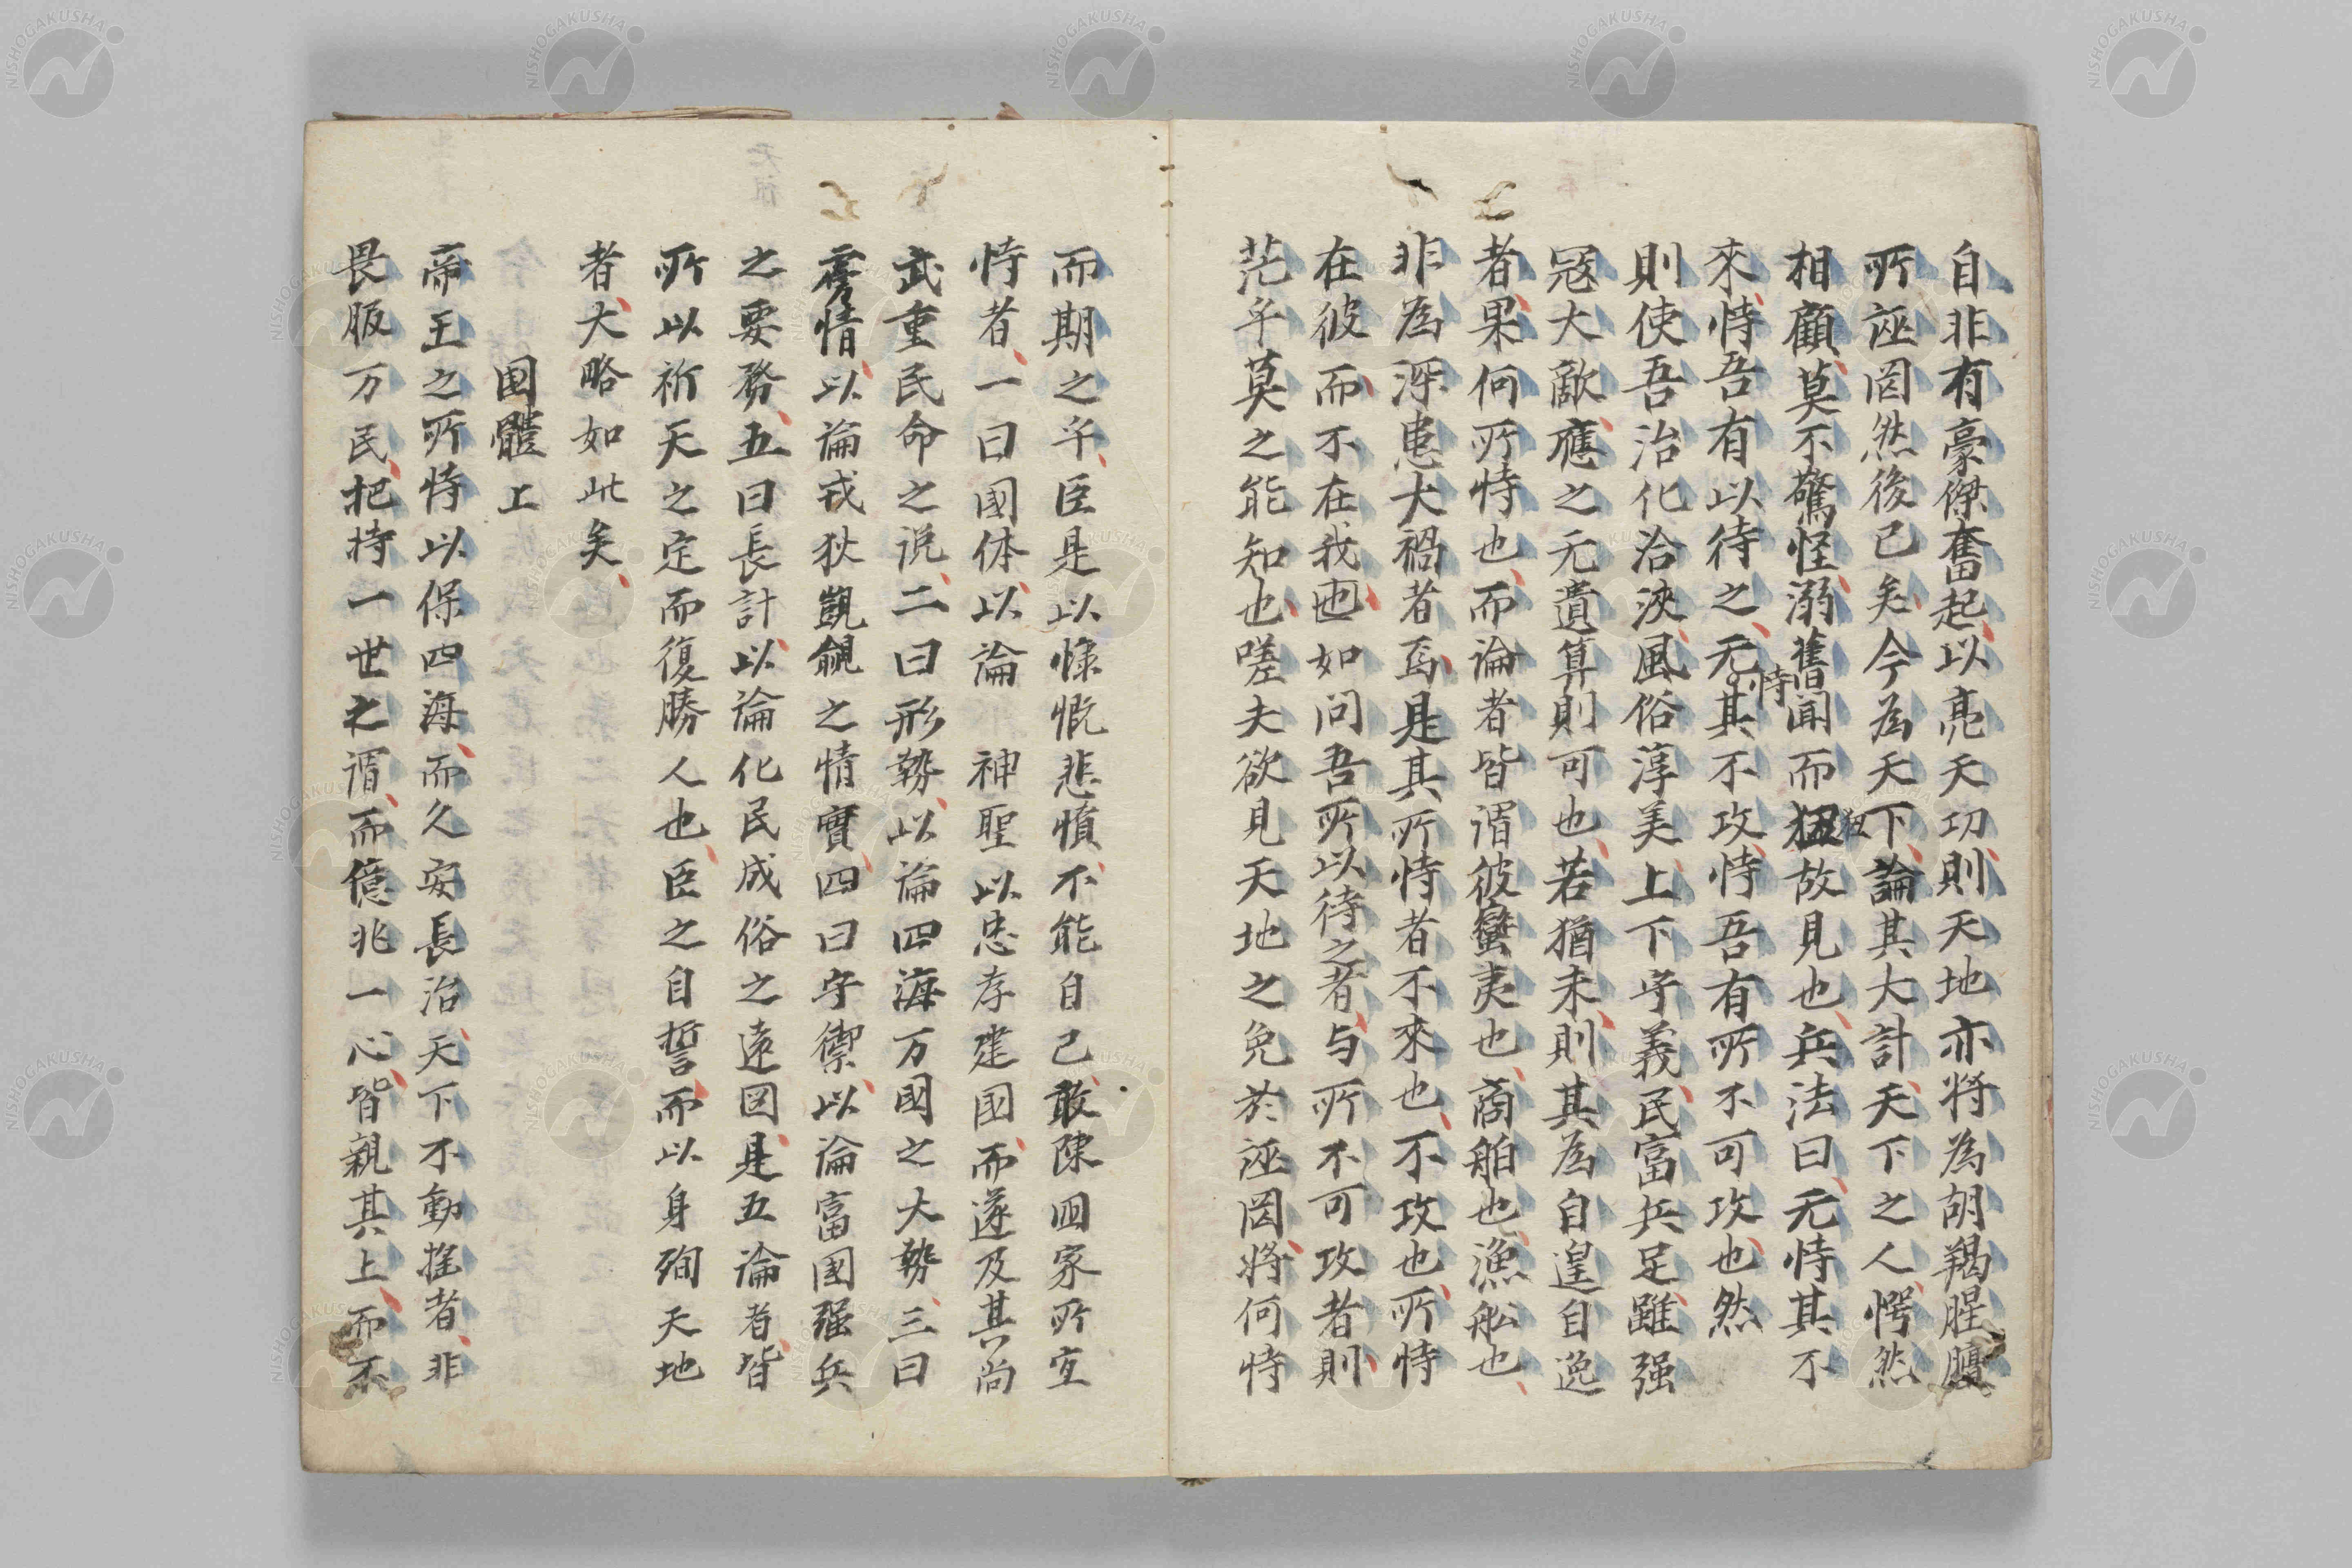 自非有豪傑奮起以亮天功則天地亦将為胡羯腥膻
所誣罔然後已矣今為天下論其大計天下之人愕然
相顧莫不驚怪溺舊聞而狃故見也兵法曰无恃其不
狃
來恃吾有以待之无其不攻恃吾有所不可攻也然
恃
則使吾治化洽浹風俗淳美上下守義民富兵足雖强
冦大敵應之无遺算則可也若猶未則其為自遑自逸
者果何所恃也而論者皆謂彼蠻夷也商舶也漁舩也
非為深患大禍者焉是其所恃者不來也不攻也所恃
在彼而不在我也如问吾所以待之者与所不可攻者則
茫乎莫之能知也嗟夫欲見天地之免於誣罔将何恃
而期之乎臣是以慷慨悲憤不能自已敢陳囯家所宜
恃者一曰國体以論 神聖以忠孝建國而遂及其尚
武重民命之説二曰形勢以論四海万國之大勢三曰
虜情以論戎狄覬覦之情實四曰守禦以論富國强兵
之要務五曰長計以論化民成俗之遠図是五論者皆
所以祈天之定而復勝人也臣之自誓而以身殉天地
者大略如此矣
国體上
帝王之所恃以保四海而久安長治天下不動揺者非
畏服万民把持一世之谓而億兆一心皆親其上而不
NISHOGAKUSHA